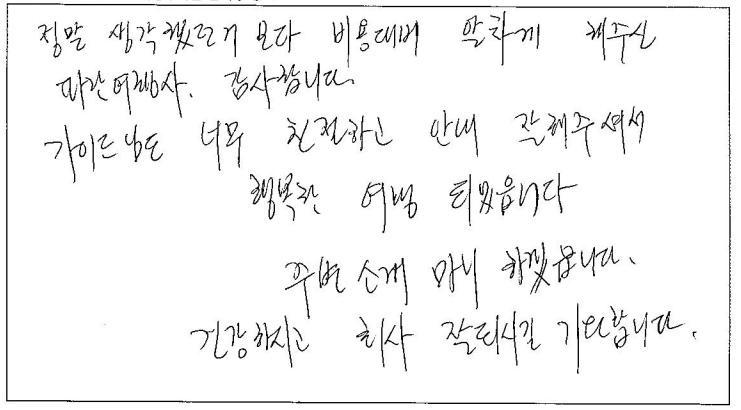 정말 생각했던거 보다 비용대비 알차게 해주신
파란여행사. 감사합니다.
가이드님도 너무 친절하고 안내 잘해주셔서
행복한 여행 되었읍니다
주변 소개 마니 하겠읍니다.
건강하시고 회사 잘되시길 기원합니다.